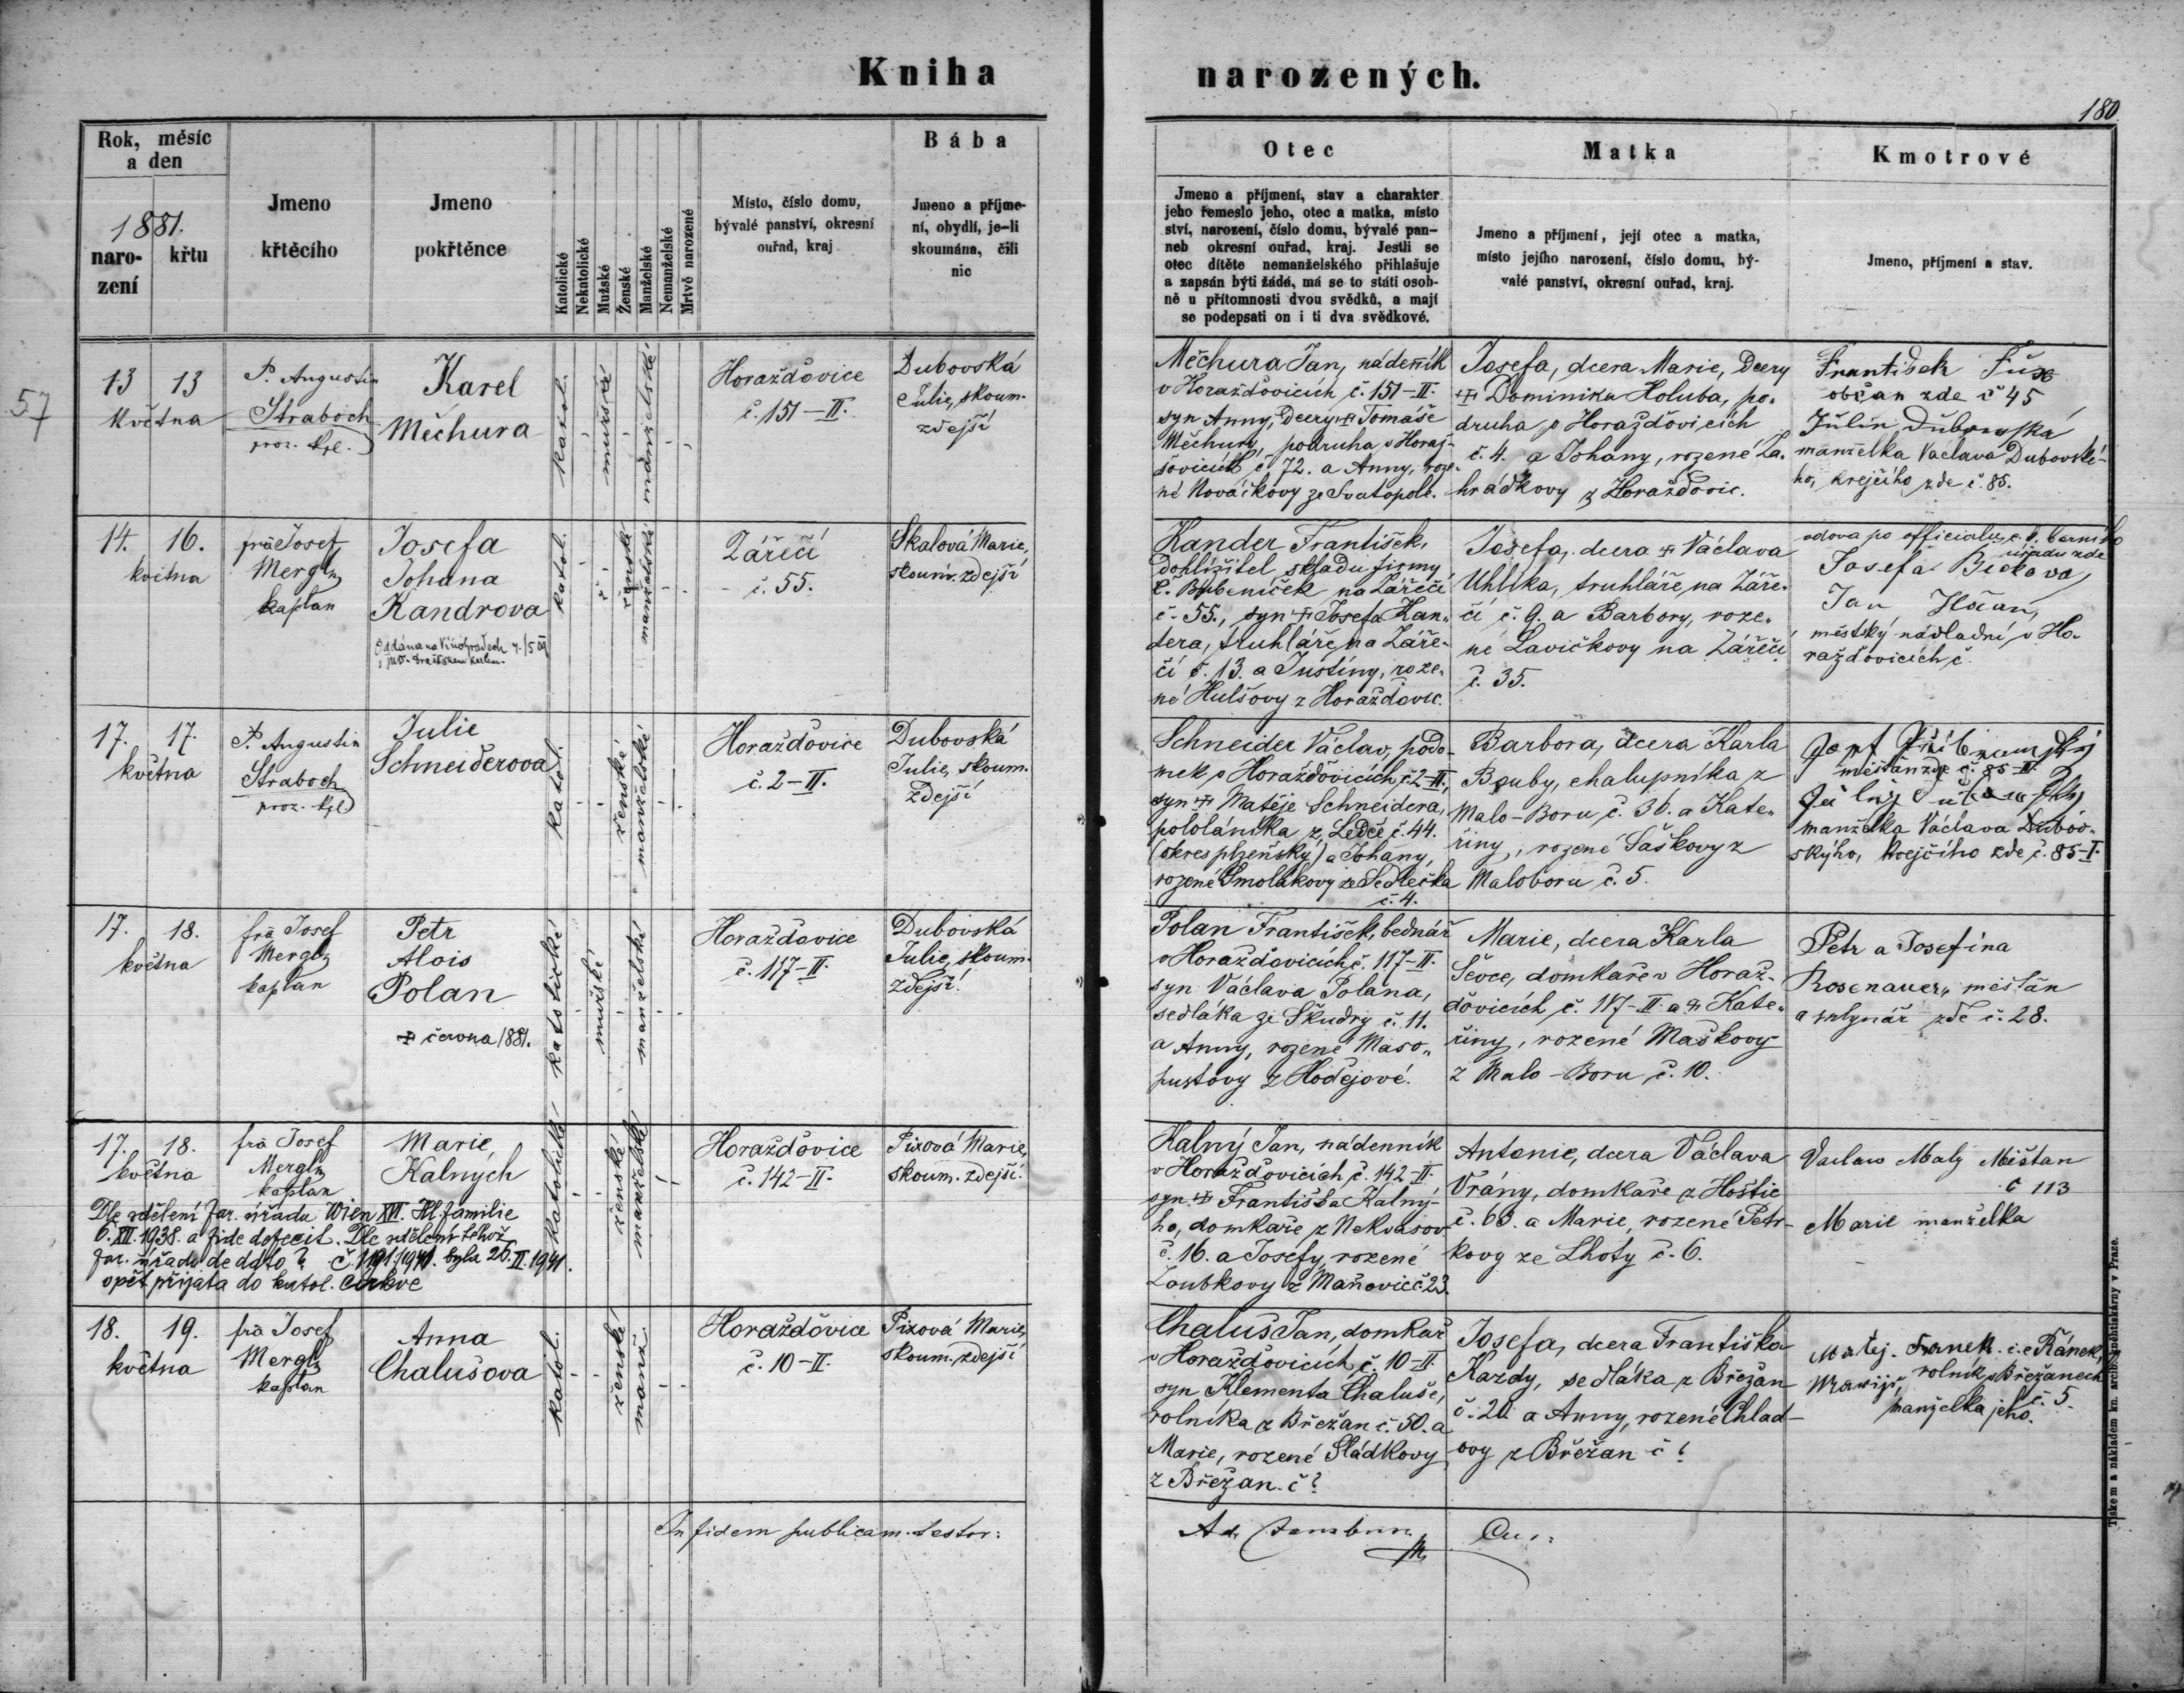 Kniha narozených.
180.
Rok, měsíc a den
1881.
naro-
zení
křtu
Jmeno
křtěcího
Jmeno
pokřtěnce
Katolické
Nekatolické
Mužské
Ženské
Manželské
Nemanželské
Mrtvě narozené
Místo, číslo domu,
bývalé panství, okresní
ouřad, kraj
Bába
Jmeno a příjme-
ní, obydlí, je-li
skoumána, čili
nic
Otec
Jmeno a příjmení, stav a charakter
jeho řemeslo jeho, otec a matka, místo
ství, narození, číslo domu, bývalé pan-
neb okresní ouřad, kraj. Jestli se
otec dítěte nemanželského přihlašuje
a zapsán býti žádá, má se to státi osob-
ně u přítomnosti dvou svědků, a mají
se podepsati on i ti dva svědkové.
Matka
Jmeno a příjmení, její otec a matka,
místo jejího narození, číslo domu, bý-
valé panství, okresní ouřad, kraj.
Kmotrové
Jmeno, příjmení a stav.
57
13 13
května
P. Augustin
Straboch
proz. kpl.
Karel
Měchura
katol.
mužské
manželské
Horažďovice
č. 151–II.
Dubovská
Julie, skoum.
zdejší
Měchura Jan, nádenník
v Horažďovicích č. 151–II.
syn Anny, dcery Tomáše
Měchury, podruha v Horaž-
ďovicích č. 72. a Anny, roze-
né Nováčkovy ze Svatopole.
Josefa, dcera Marie, dcery
Dominika Holuba, po-
druha v Horažďovicích
č. 4. a Johany, rozené Za-
hrádkovy z Horažďovic.
František Fux
občan zde č 45
manželka Václava Dubovské-
ho, krejčího zde č. 85.
14. 16.
května
frä Josef
Mergl
kaplan
Josefa
Johana
Kandrova
Oddána na Vinohradech
katol.
ženské
manželské
Zářečí
č. 55.
Skalová Marie,
skoum. zdejší
Kander František,
dohlížitel skladu firmy
Bubeníček na Zářečí
č. 55., syn Josefa Kan-
dera, truhláře na Záře-
čí č. 13. a Justiny, roze-
né Hulšovy z Horažďovic.
Josefa, dcera Václava
Uhlíka, truhláře na Záře-
čí č. 9. a Barbory, roze-
né Lavičkovy na Zářečí
č. 35.
vdova po officialu c. k. berního
úřadu zde
Josefa
Jan
městský v Ho-
ražďovicích č.
17. 17.
května
P. Augustin
Straboch
proz. kpl
Julie
Schneiderova
katol.
ženské
manželské
Horažďovice
č. 2–II.
Dubovská
Julie, skoum.
zdejší
Schneider Václav, podo-
mek v Horažďovicích č. 2–II.,
syn Matěje Schneidera,
pololáníka z Ledče č. 44.
(okres plzeňský) a Johany,
rozené Smolákovy ze Sedlečka
č. 4.
Barbora, dcera Karla
Bouby, chalupníka z
Malo-Boru č. 36. a Kate-
řiny, rozené Saškovy z
Maloboru č. 5.
měšťan zde č. 85–II.
manželka Václava Dubov-
skýho, krejčího zde č. 85–I.
17. 18.
května
frä Josef
Mergl
kaplan
Petr
Alois
Polan
června 1881.
katolické
mužské
manželské
Horažďovice
č. 117–II.
Dubovská
Julie, skoum.
zdejší
Polan František, bednář
v Horažďovicích č. 117–II.
syn Václava Polana,
sedláka ze Škudry č. 11.
a Anny, rozené Maso-
pustovy z Hodějové.
Marie, dcera Karla
Ševce, domkaře v Horaž-
ďovicích č. 117–II. a Kate-
řiny, rozené Maškovy
z Malo-Boru č. 10.
Petr a Josefína
Rosenauer, měšťan
a mlynář zde č. 28.
17. 18.
května
frä Josef
Mergl
kaplan
Marie
Kalných
katolické
ženské
manželské
Horažďovice
č. 142–II.
Pixová Marie,
skoum. zdejší.
Dle sdělení far. úřadu Wien XVI. Hl. Familie
6. XII. 1938. a fide defecit. Dle sdělení téhož
far. úřadu de dato ? č. 1191/1941. byla 26. II. 1941.
opět přijata do katol. církve
Kalný Jan, nádenník
v Horažďovicích č. 142–II.
syn Františka Kalný-
ho, domkaře z Nekvasov
č. 16. a Josefy, rozené
Zoubkovy z Maňovic č. 23.
Antonie, dcera Václava
Vrány, domkaře z Hoštic
č. 63. a Marie, rozené Petr-
kovy ze Lhoty č. 6.
Vaclaw Maly Měštan
č 113
Marie manželka
18. 19.
května
frä Josef
Mergl
kaplan
Anna
Chalušova
katol.
ženské
manž.
Horažďovice
č. 10–II.
Pixová Marie,
skoum. zdejší
Chaluš Jan, domkář
v Horažďovicích č. 10–II.
syn Klementa Chaluše,
rolníka z Břežan č. 50. a
Marie, rozené Sládkovy
z Břežan. č ?
Josefa, dcera Františka
Kazdy, sedláka z Břežan
č. 20 a Anny, rozené Chlad-
ovy z Břežan č ?
Matěj
rolník v Břežanech
č. 5.
manželka jeho.
In fidem publicam testor:
Tiskem a nákladem kn. arcib. knihtiskárny v Praze.